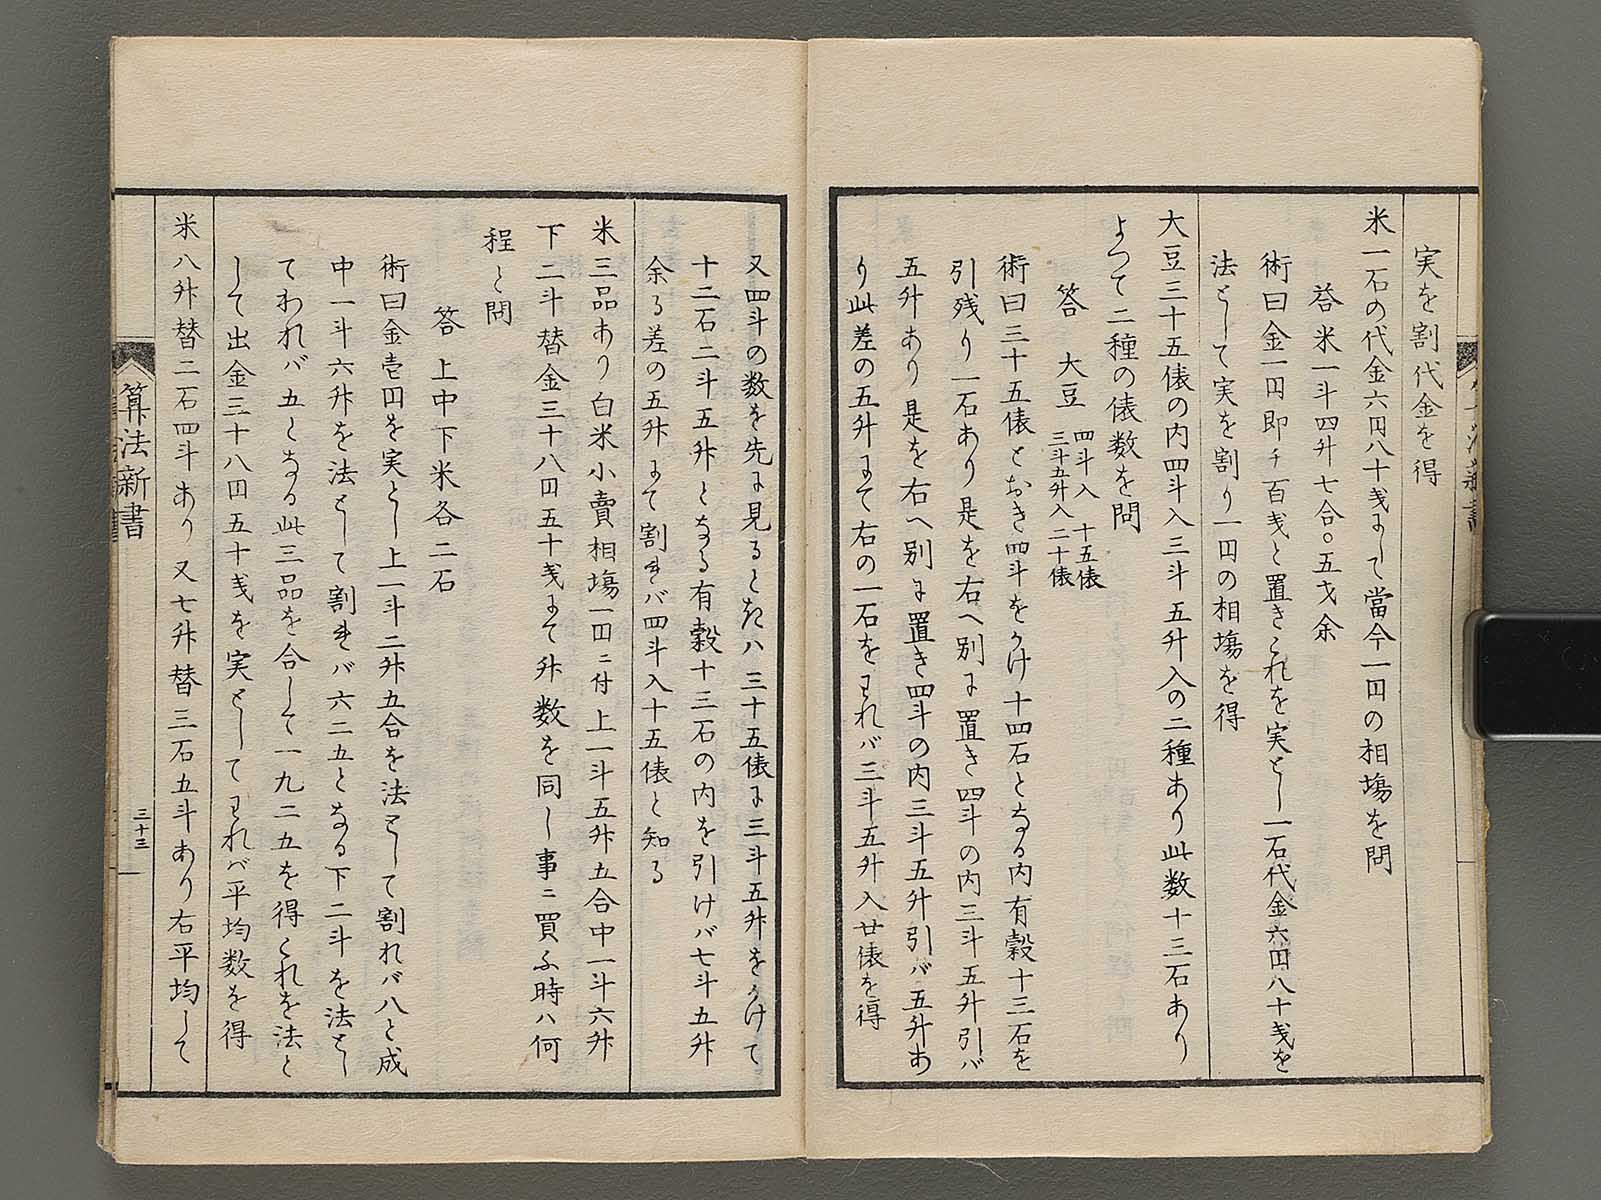 実を割代金を得
米一石の代金六円八十戋にして當今一円の相塲を問
答米一斗四升七合〇五才余
術曰金一円即チ百戋と置きこれを実とし一石代金六円八十戋を
法として実を割り一円の相塲を得
大豆三十五俵の内四斗入三斗五升入の二種あり此数十三石あり
よつて二種の俵数を問
答 大豆 四斗入 十五俵
三斗五升入 二十俵
術曰三十五俵とおき四斗をかけ十四石となる内有穀十三石を
引残り一石あり是を右へ別に置き四斗の内三斗五升引バ
五升あり是を右へ別に置き四斗の内三斗五升引バ五升あ
り此差の五升にて右の一石をわれバ三斗五升入廿俵を得
又四斗の数を先に見るときハ三十五俵に三斗五升をかけて
十二石二斗五升となる有穀十三石の内を引けバ七斗五升
余る差の五升にて割れバ四斗入十五俵と知る
米三品あり白米小賣相塲一円ニ付上一斗五升五合中一斗六升
下二斗替金三十八円五十戋にて升数を同し事ニ買ふ時ハ何
程と問
答 上中下米各二石
術曰金壱円を実とし上一斗二升五合を法として割れバ八と成
中一斗六升を法として割れバ六二五となる下二斗を法とし
てわれバ五となる此三品を合して一九二五を得これを法と
して出金三十八円五十戋を実としてわれバ平均数を得
米八升替二石四斗あり又七升替三石五斗あり右平均して
算法新書
三十三